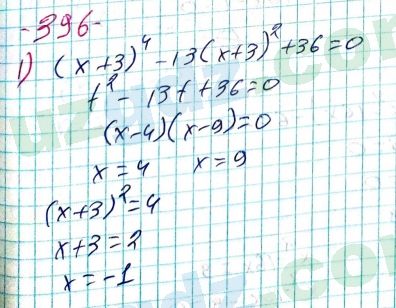 -396-
1) (x+3)⁴ -13(x+3)² +36=0
t² - 13t +36=0
(x-4)(x-9)=0
x=4 x=9
(x+3)²=4
x+3=2
x=-1